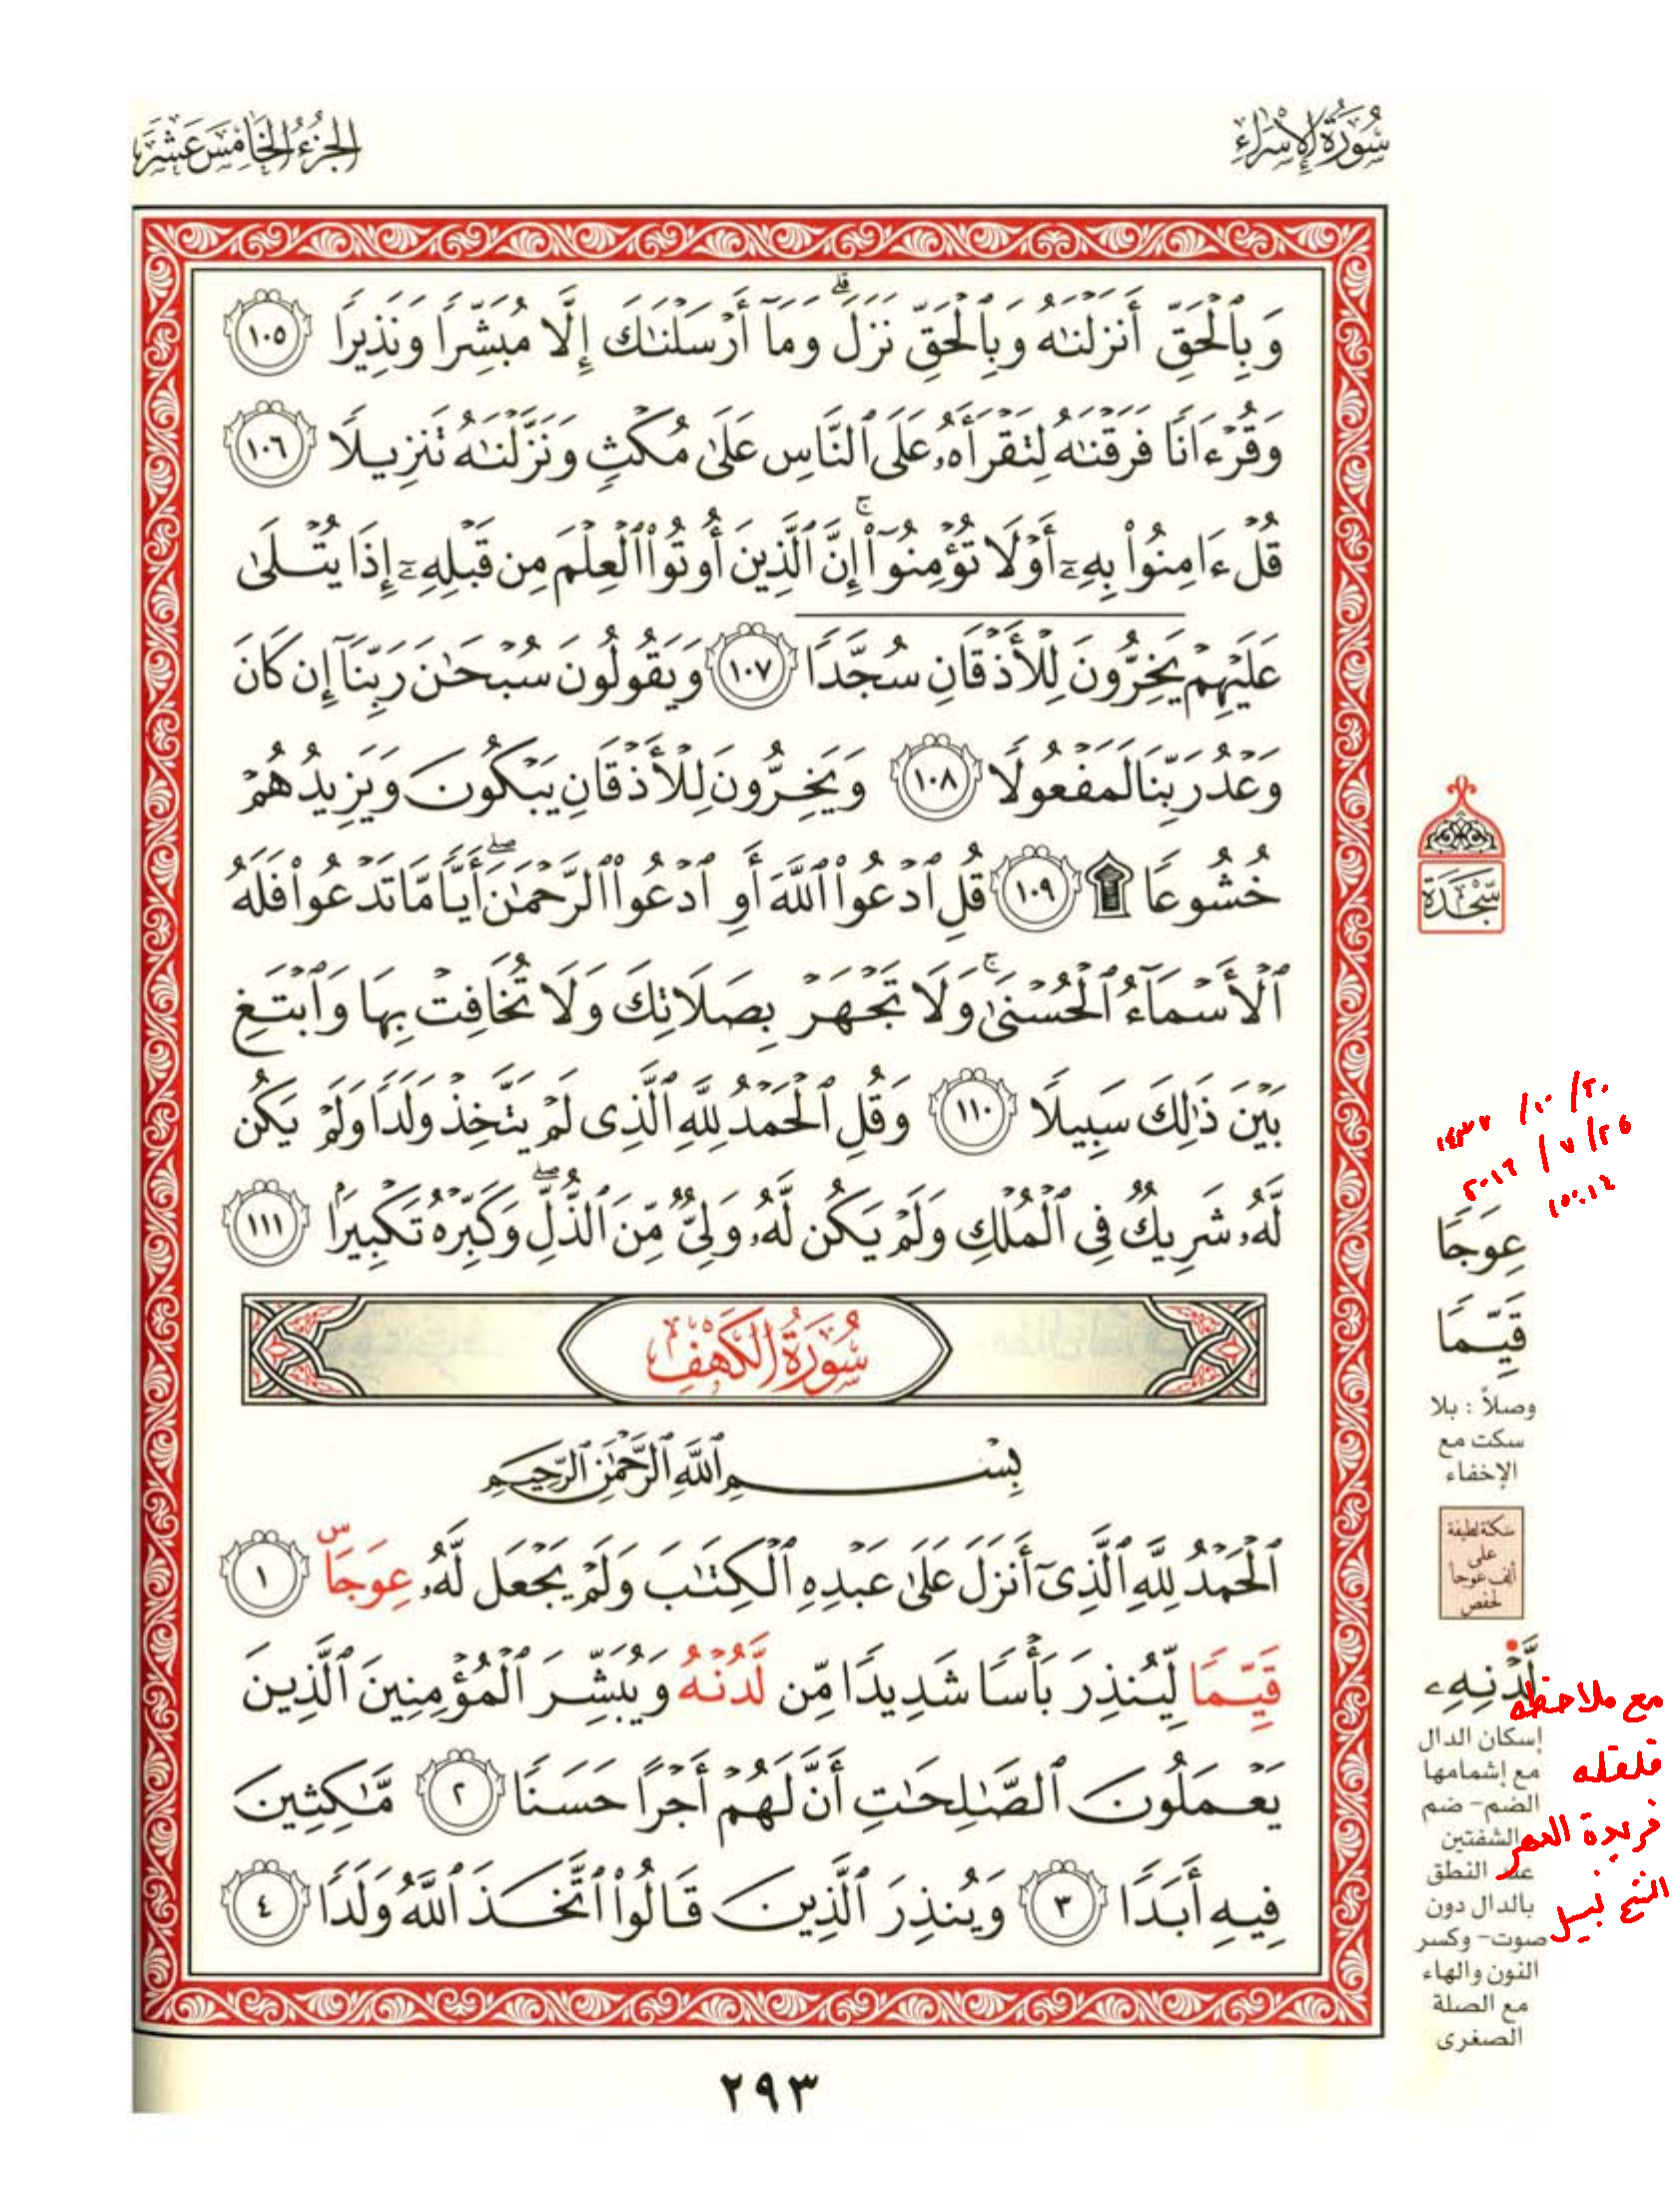 سُورَةُ الإِسْرَاءِ
الجُزْءُ الخَامِسَ عَشَرَ
وَبِٱلْحَقِّ أَنزَلْنَٰهُ وَبِٱلْحَقِّ نَزَلَ ۗ وَمَآ أَرْسَلْنَٰكَ إِلَّا مُبَشِّرًا وَنَذِيرًا ١٠٥
وَقُرْءَانًا فَرَقْنَٰهُ لِتَقْرَأَهُۥ عَلَى ٱلنَّاسِ عَلَىٰ مُكْثٍ وَنَزَّلْنَٰهُ تَنزِيلًا ١٠٦
قُلْ ءَامِنُوا۟ بِهِۦٓ أَوْ لَا تُؤْمِنُوٓا۟ ۚ إِنَّ ٱلَّذِينَ أُوتُوا۟ ٱلْعِلْمَ مِن قَبْلِهِۦٓ إِذَا يُتْلَىٰ
عَلَيْهِمْ يَخِرُّونَ لِلْأَذْقَانِ سُجَّدًا ١٠٧ وَيَقُولُونَ سُبْحَٰنَ رَبِّنَآ إِن كَانَ
وَعْدُ رَبِّنَا لَمَفْعُولًا ١٠٨ وَيَخِرُّونَ لِلْأَذْقَانِ يَبْكُونَ وَيَزِيدُهُمْ
خُشُوعًا ۩ ١٠٩ قُلِ ٱدْعُوا۟ ٱللَّهَ أَوِ ٱدْعُوا۟ ٱلرَّحْمَٰنَ ۖ أَيًّا مَّا تَدْعُوا۟ فَلَهُ
ٱلْأَسْمَآءُ ٱلْحُسْنَىٰ ۚ وَلَا تَجْهَرْ بِصَلَاتِكَ وَلَا تُخَافِتْ بِهَا وَٱبْتَغِ
بَيْنَ ذَٰلِكَ سَبِيلًا ١١٠ وَقُلِ ٱلْحَمْدُ لِلَّهِ ٱلَّذِى لَمْ يَتَّخِذْ وَلَدًا وَلَمْ يَكُن
لَّهُۥ شَرِيكٌ فِى ٱلْمُلْكِ وَلَمْ يَكُن لَّهُۥ وَلِىٌّ مِّنَ ٱلذُّلِّ ۖ وَكَبِّرْهُ تَكْبِيرًۢا ١١١
سُورَةُ الكَهْفِ
بِسْمِ ٱللَّهِ ٱلرَّحْمَٰنِ ٱلرَّحِيمِ
ٱلْحَمْدُ لِلَّهِ ٱلَّذِىٓ أَنزَلَ عَلَىٰ عَبْدِهِ ٱلْكِتَٰبَ وَلَمْ يَجْعَل لَّهُۥ عِوَجَاۜ ١
قَيِّمًا لِّيُنذِرَ بَأْسًا شَدِيدًا مِّن لَّدُنْهُ وَيُبَشِّرَ ٱلْمُؤْمِنِينَ ٱلَّذِينَ
يَعْمَلُونَ ٱلصَّٰلِحَٰتِ أَنَّ لَهُمْ أَجْرًا حَسَنًا ٢ مَّٰكِثِينَ
فِيهِ أَبَدًا ٣ وَيُنذِرَ ٱلَّذِينَ قَالُوا۟ ٱتَّخَذَ ٱللَّهُ وَلَدًا ٤
سَجْدَة
١٤٣٧ / ١٠ / ٢٠
٢٠١٦ / ٧ / ٢٥
عِوَجًا
قَيِّمًا
وصلاً : بلا
سكت مع
الإخفاء
سكتة لطيفة
على
ألف عوجاً
لحفص
لَّدْنِهِۦ
إسكان الدال
مع إشمامها
الضم- ضم
الشفتين
عند النطق
بالدال دون
صوت- وكسر
النون والهاء
مع الصلة
الصغرى
مع ملاحظه
قلقله
فريدة العصر
نبيل
٢٩٣